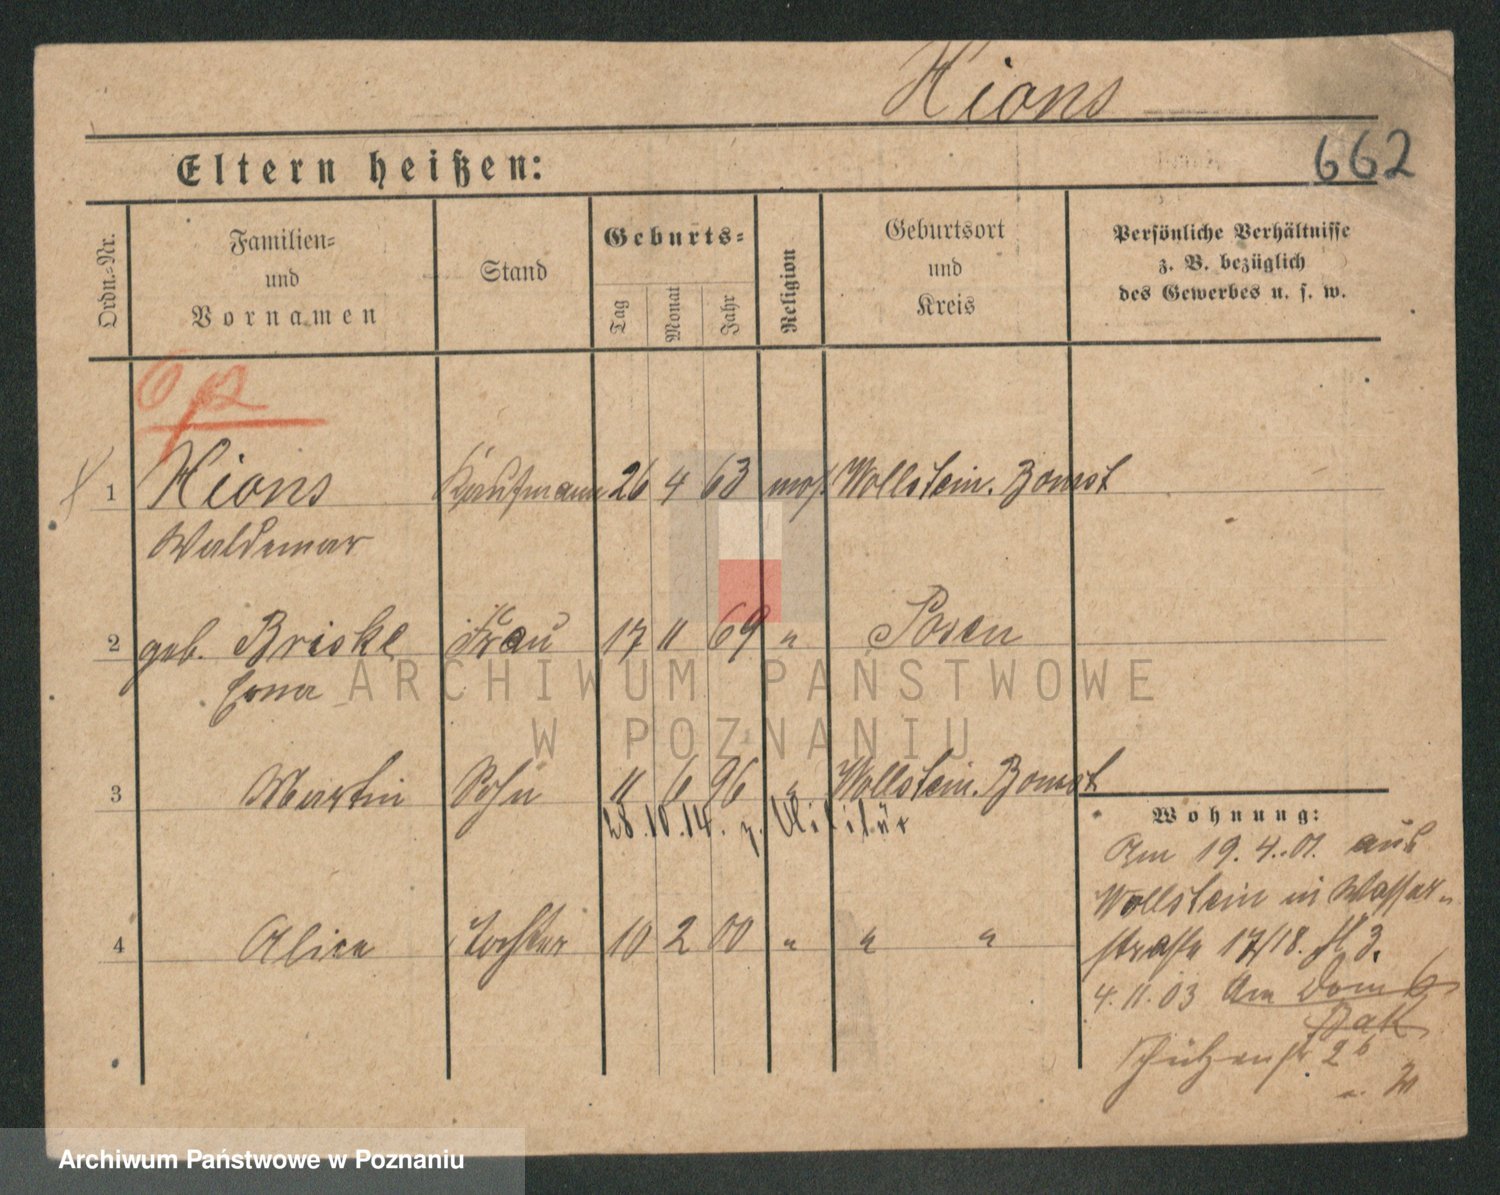 Kions
662
Eltern heißen:
Ordn.-Nr.
Familien-
und
Vornamen
Stand
Geburts-
Tag
Monat
Jahr
Religion
Geburtsort
und
Kreis
Persönliche Verhältnisse
z. B. bezüglich
des Gewerbes u. s. w.
1 Kions Kaufmann 26 4 63 mos. Wollstein. Bomst
Waldemar
2 geb. Briske Frau 17 11 69 " Posen
Erna
3 Martin Sohn 11 6 96 " Wollstein. Bomst
28.10.14. z. Militär
4 Alice Tochter 10 2 00 " " "
Wohnung:
Am 19.4.01. aus
Wollstein in Wasser-
strasse 17/18.
4.11.03 Am Dom
Schützenstr 2b
ARCHIWUM PAŃSTWOWE
W POZNANIU
Archiwum Państwowe w Poznaniu